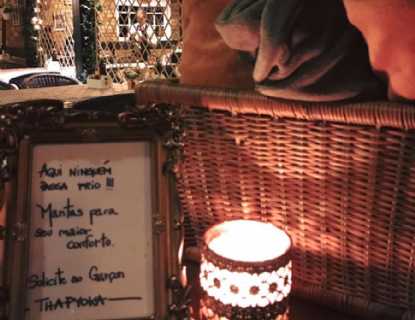 Aqui ninguém
passa frio !!!
Mantas para
seu maior
conforto.
Solicite ao Garçon
- THAPYOKA -